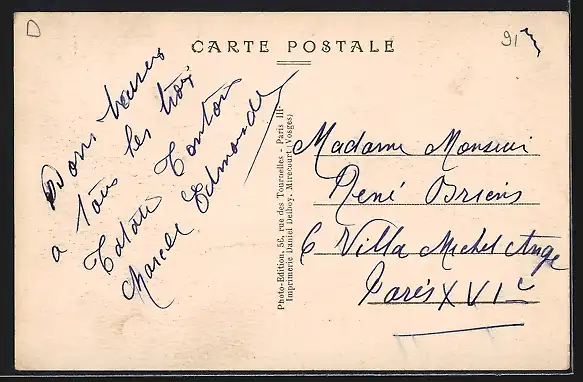 D
91
CARTE POSTALE
Bons baisers
a tous les trois
Tatan Tonton
Marcel Edmonde
Photo-Edition, 56, rue des Tournelles - Paris III
Imprimerie Daniel Delboy, Mirecourt (Vosges)
Madame Monsieur
René Briens
6 Villa Michel Ange
Paris XVIe